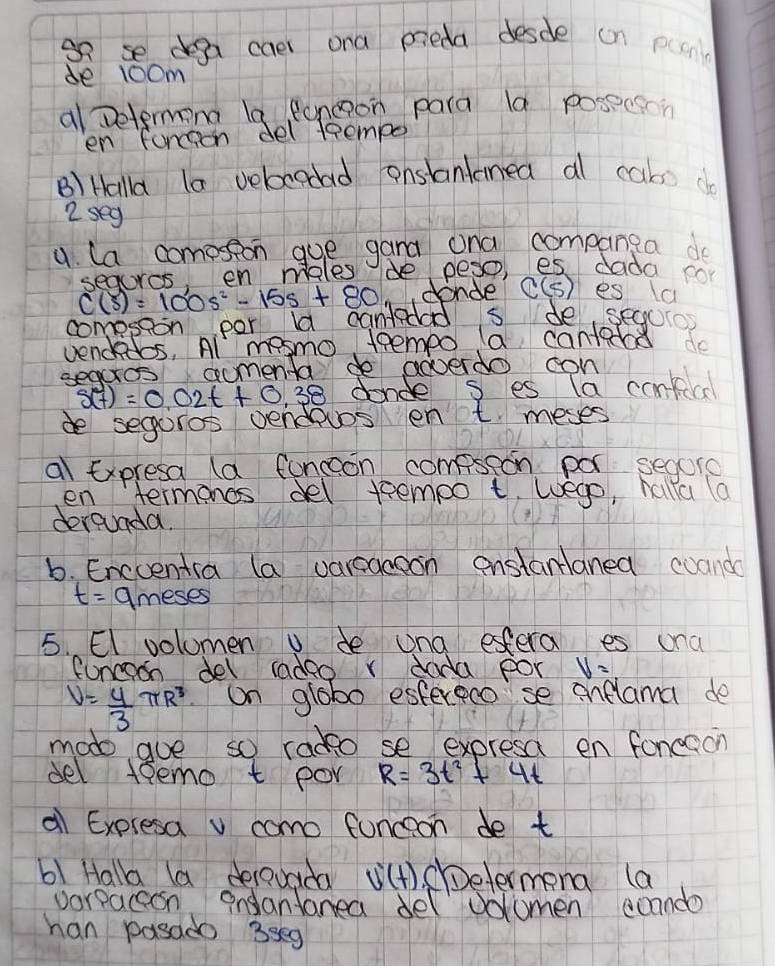 Si se deja caer una piedra desde un puente
de 100m
a) Determina la función para la posición
en función del tiempo
B) Halla la velocidad instantánea al cabo de
2 seg
4. La comisión que gana una compañia de
seguros, en miles de peso, es dada por
C(s) = 100s² - 15s + 80, donde C(s) es la
comisión por la cantidad s de seguros
vendidos. Al mismo tiempo la cantidad de
seguros aumenta de acuerdo con
s(t) = 0,02t + 0,38 donde s es la cantidad
de seguros vendidos en t meses
a) Expresa la función comisión por seguro
en terminos del tiempo t. Luego, halla la
derivada.
b. Encuentra la variación instantanea cuando
t = 9 meses
5. El volumen v de una esfera es una
función del radio r dada por V=
V = 4/3 πR³. Un globo esferico se inflama de
modo que su radio se expresa en función
del tiemo t por R = 3t² + 4t
a) Expresa v como función de t
b) Halla la derivada v'(t) c) Determina la
variación instantanea del volumen cuando
han pasado 3seg